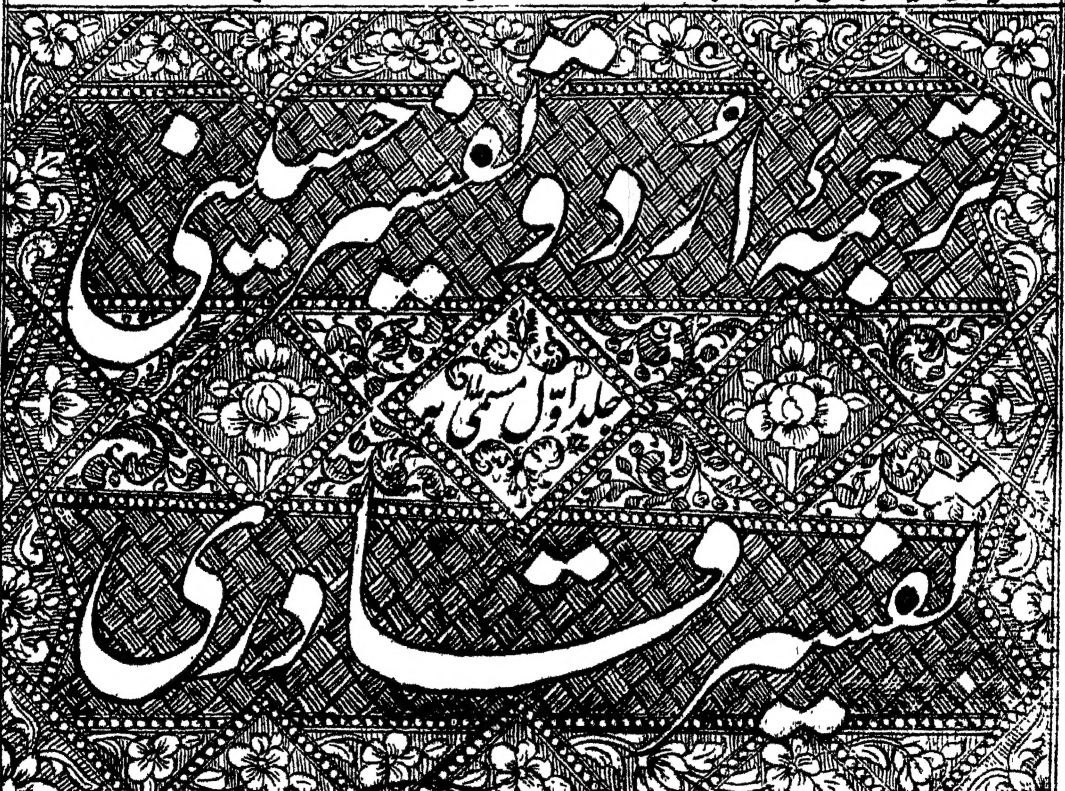 ترجمۂ اُردو تفسیر حسینی
جلد اوّل مسمّٰی بہ
تفسیر قادری